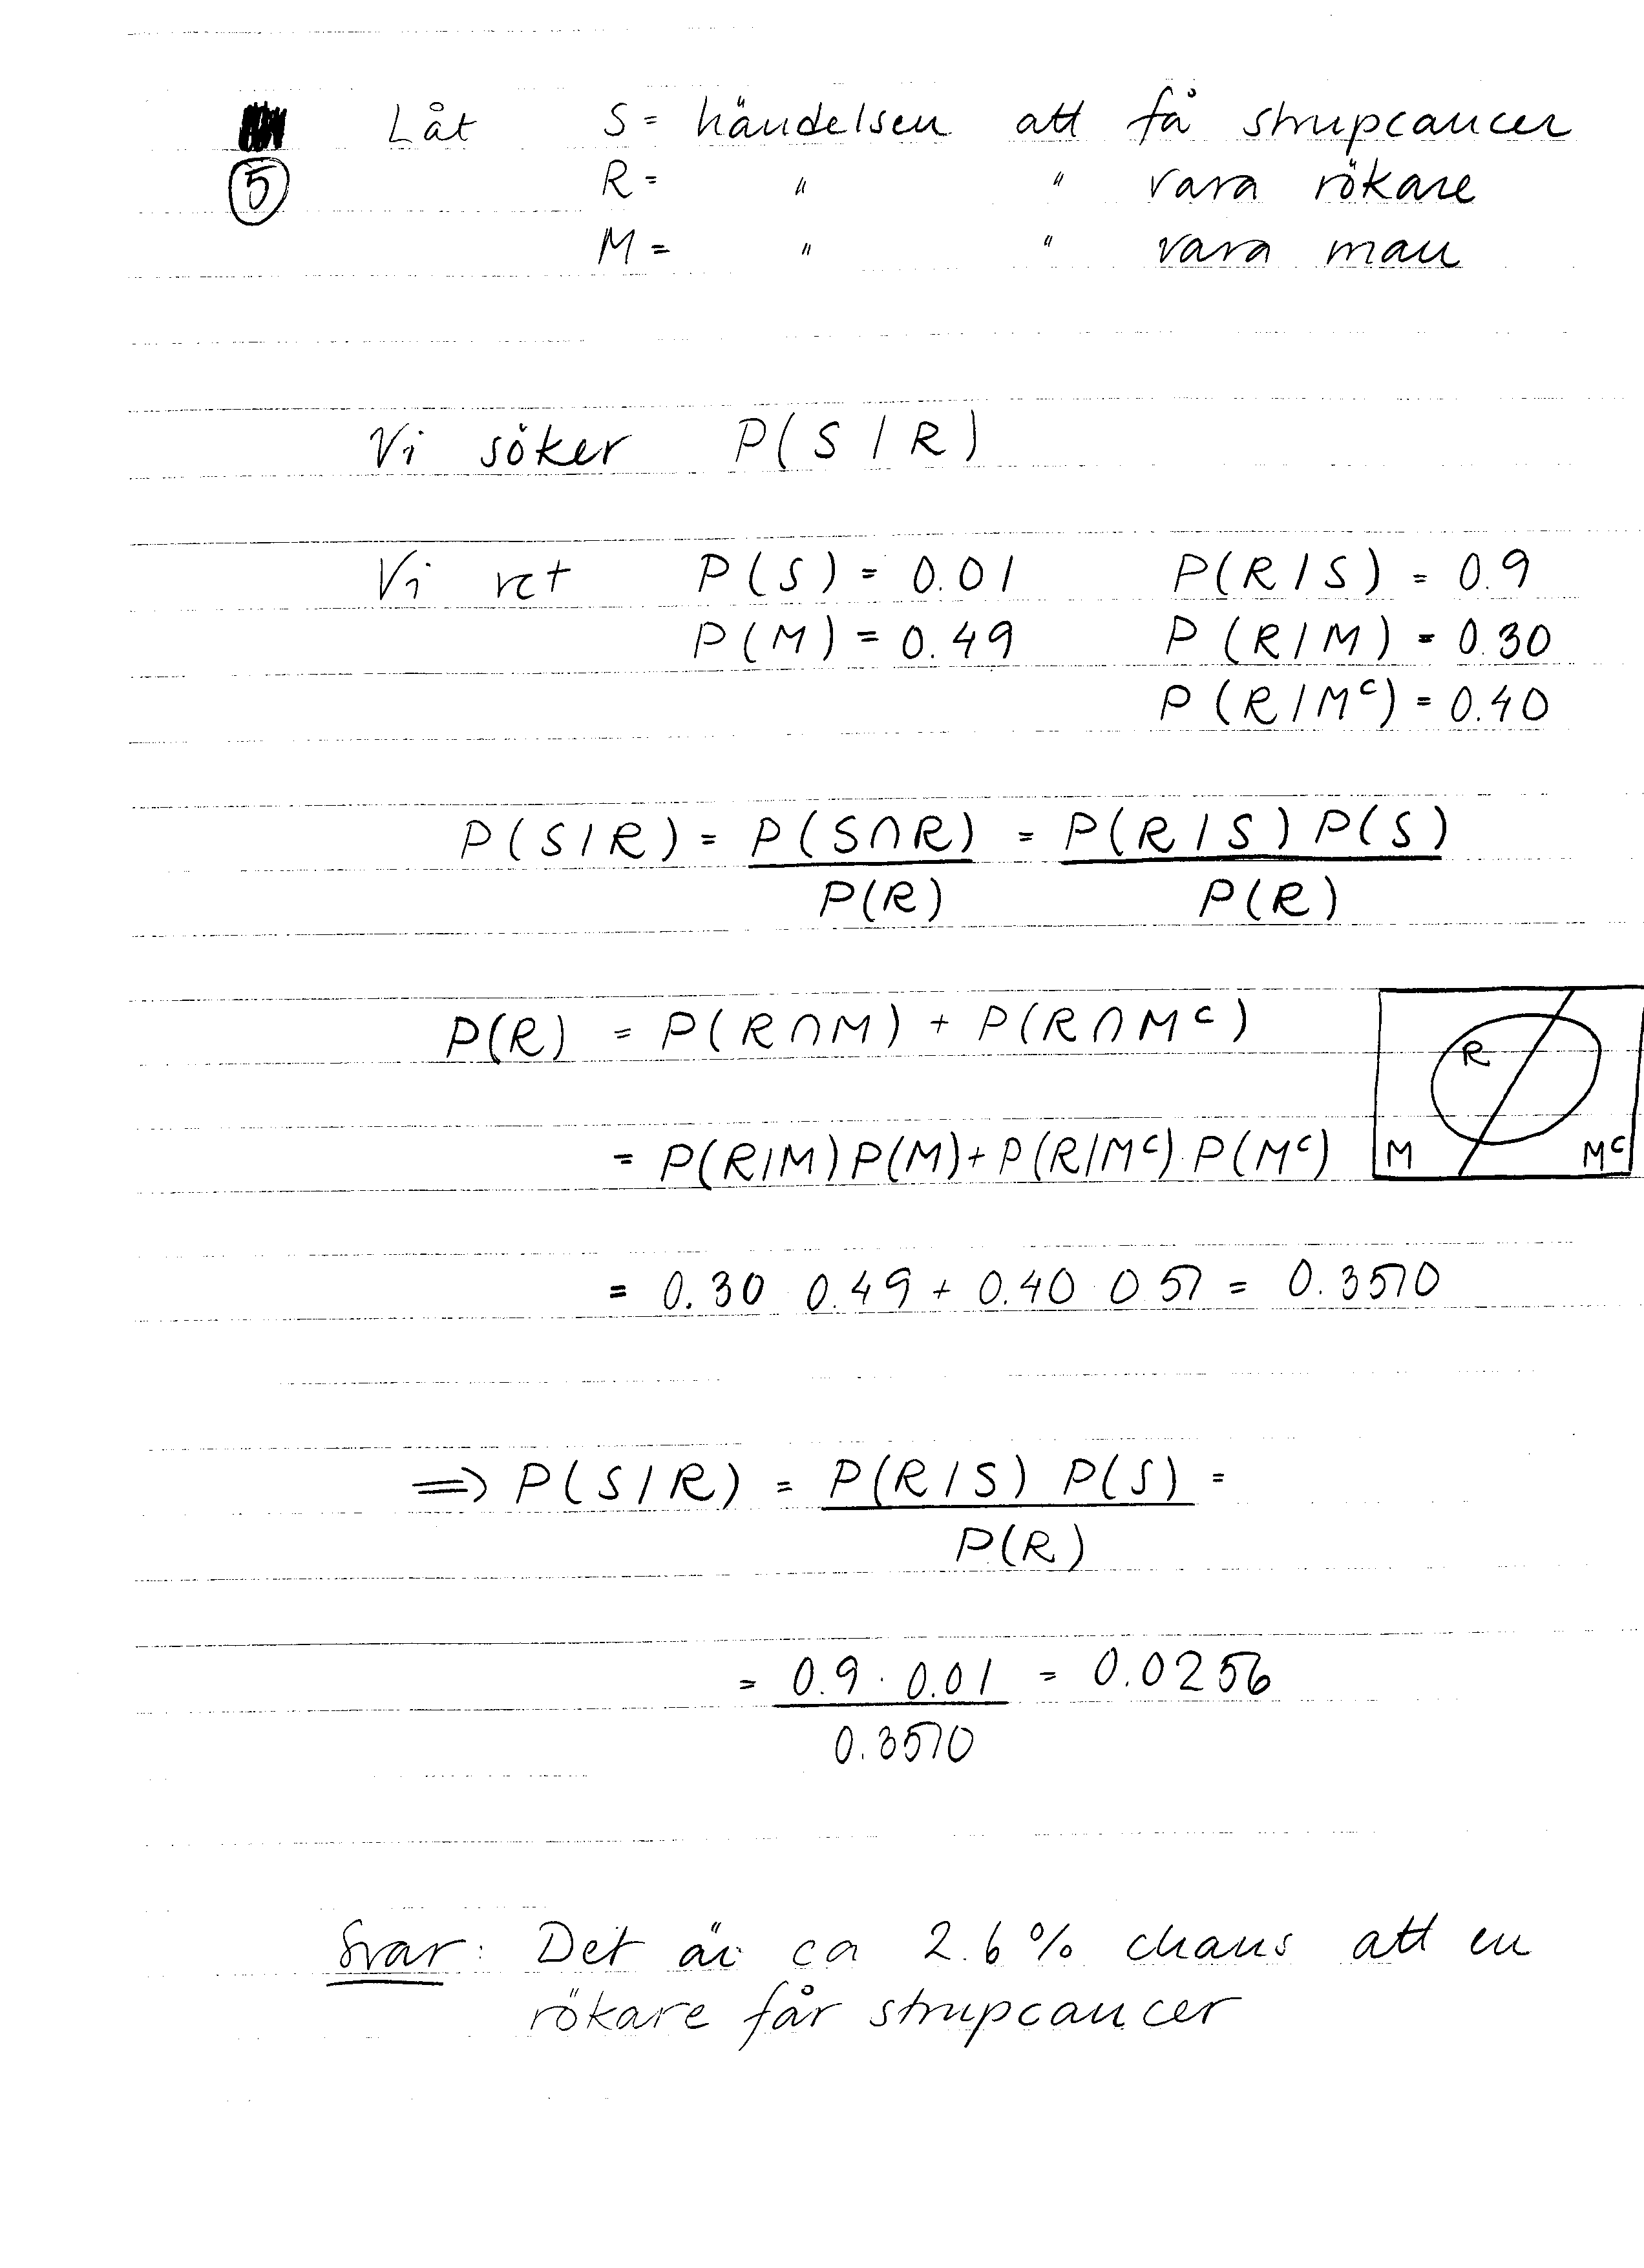 Låt S = händelsen att få strupcancer
⑤ R = " " vara rökare
M = " " vara man
Vi söker P(S/R)
Vi vet P(S) = 0.01 P(R/S) = 0.9
P(M) = 0.49 P(R/M) = 0.30
P(R/Mᶜ) = 0.40
P(S/R) = P(S∩R) = P(R/S) P(S)
P(R) P(R)
P(R) = P(R∩M) + P(R∩Mᶜ)
R
= P(R/M) P(M) + P(R/Mᶜ) · P(Mᶜ)
M Mᶜ
= 0.30 0.49 + 0.40 · 0 51 = 0.3510
⟹ P(S/R) = P(R/S) P(S) =
P(R)
= 0.9 · 0.01 = 0.0256
0.3510
Svar: Det är ca 2.6 % chans att en
rökare får strupcancer